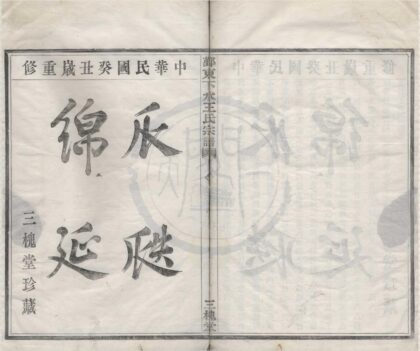 中華民國癸丑歲重修
瓜瓞
綿延
三槐堂珍藏
東下水王氏宗譜
三槐堂